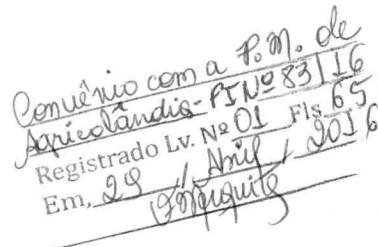 Convênio com a P.M. de
Agricolândia-PI Nº 83/16
Registrado Lv. Nº 01 Fls 65
Em, 29 / Abril / 2016